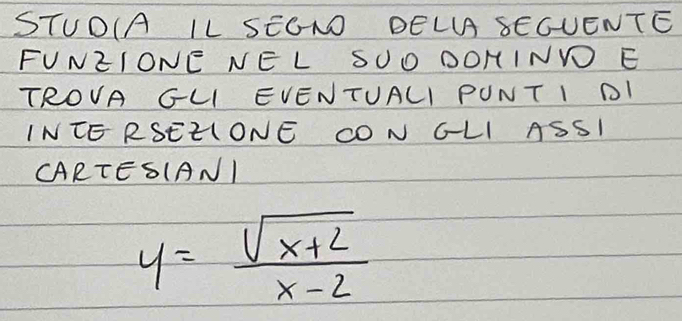 STUDIA IL SEGNO DELLA SEGUENTE
FUNZIONE NEL SUO DOMINIO E
TROVA GLI EVENTUALI PUNTI DI
INTERSEZIONE CON GLI ASSI
CARTESIANI
y = √(x+2) / (x-2)